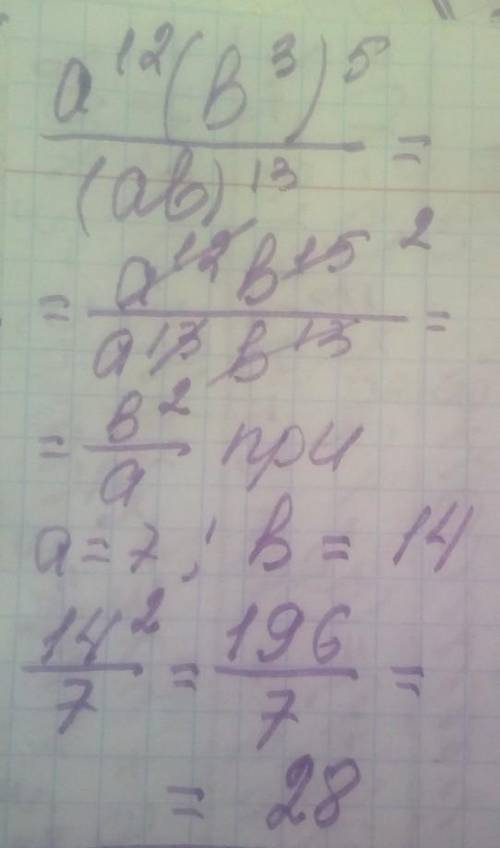 a¹²(b³)⁵
(ab)¹³ =
= a¹² b¹⁵ ²
a¹³ b¹³ =
= b²
a при
a = 7 ; b = 14
14² = 196 =
7 7
= 28